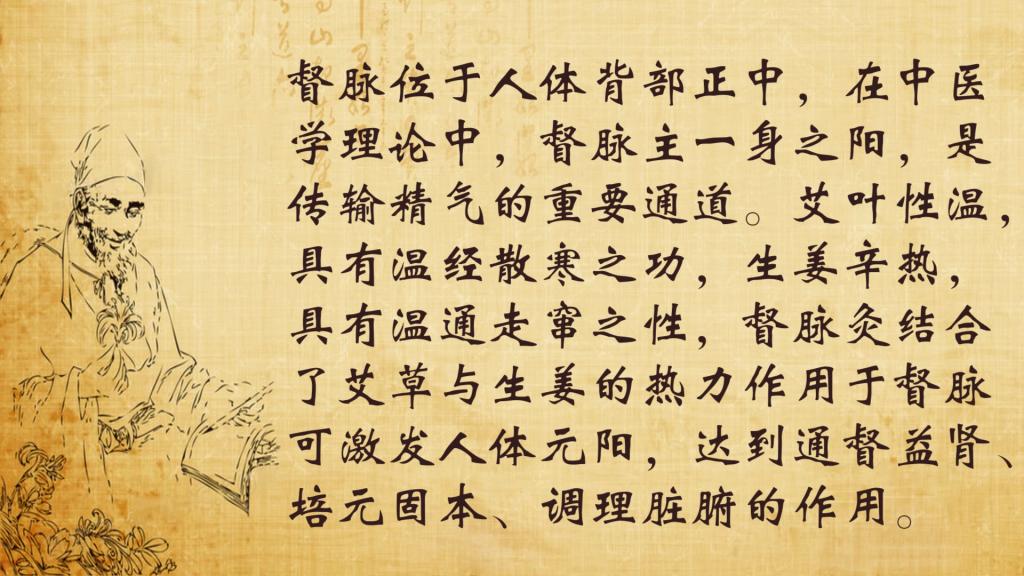 督脉位于人体背部正中，在中医
学理论中，督脉主一身之阳，是
传输精气的重要通道。艾叶性温，
具有温经散寒之功，生姜辛热，
具有温通走窜之性，督脉灸结合
了艾草与生姜的热力作用于督脉
可激发人体元阳，达到通督益肾、
培元固本、调理脏腑的作用。